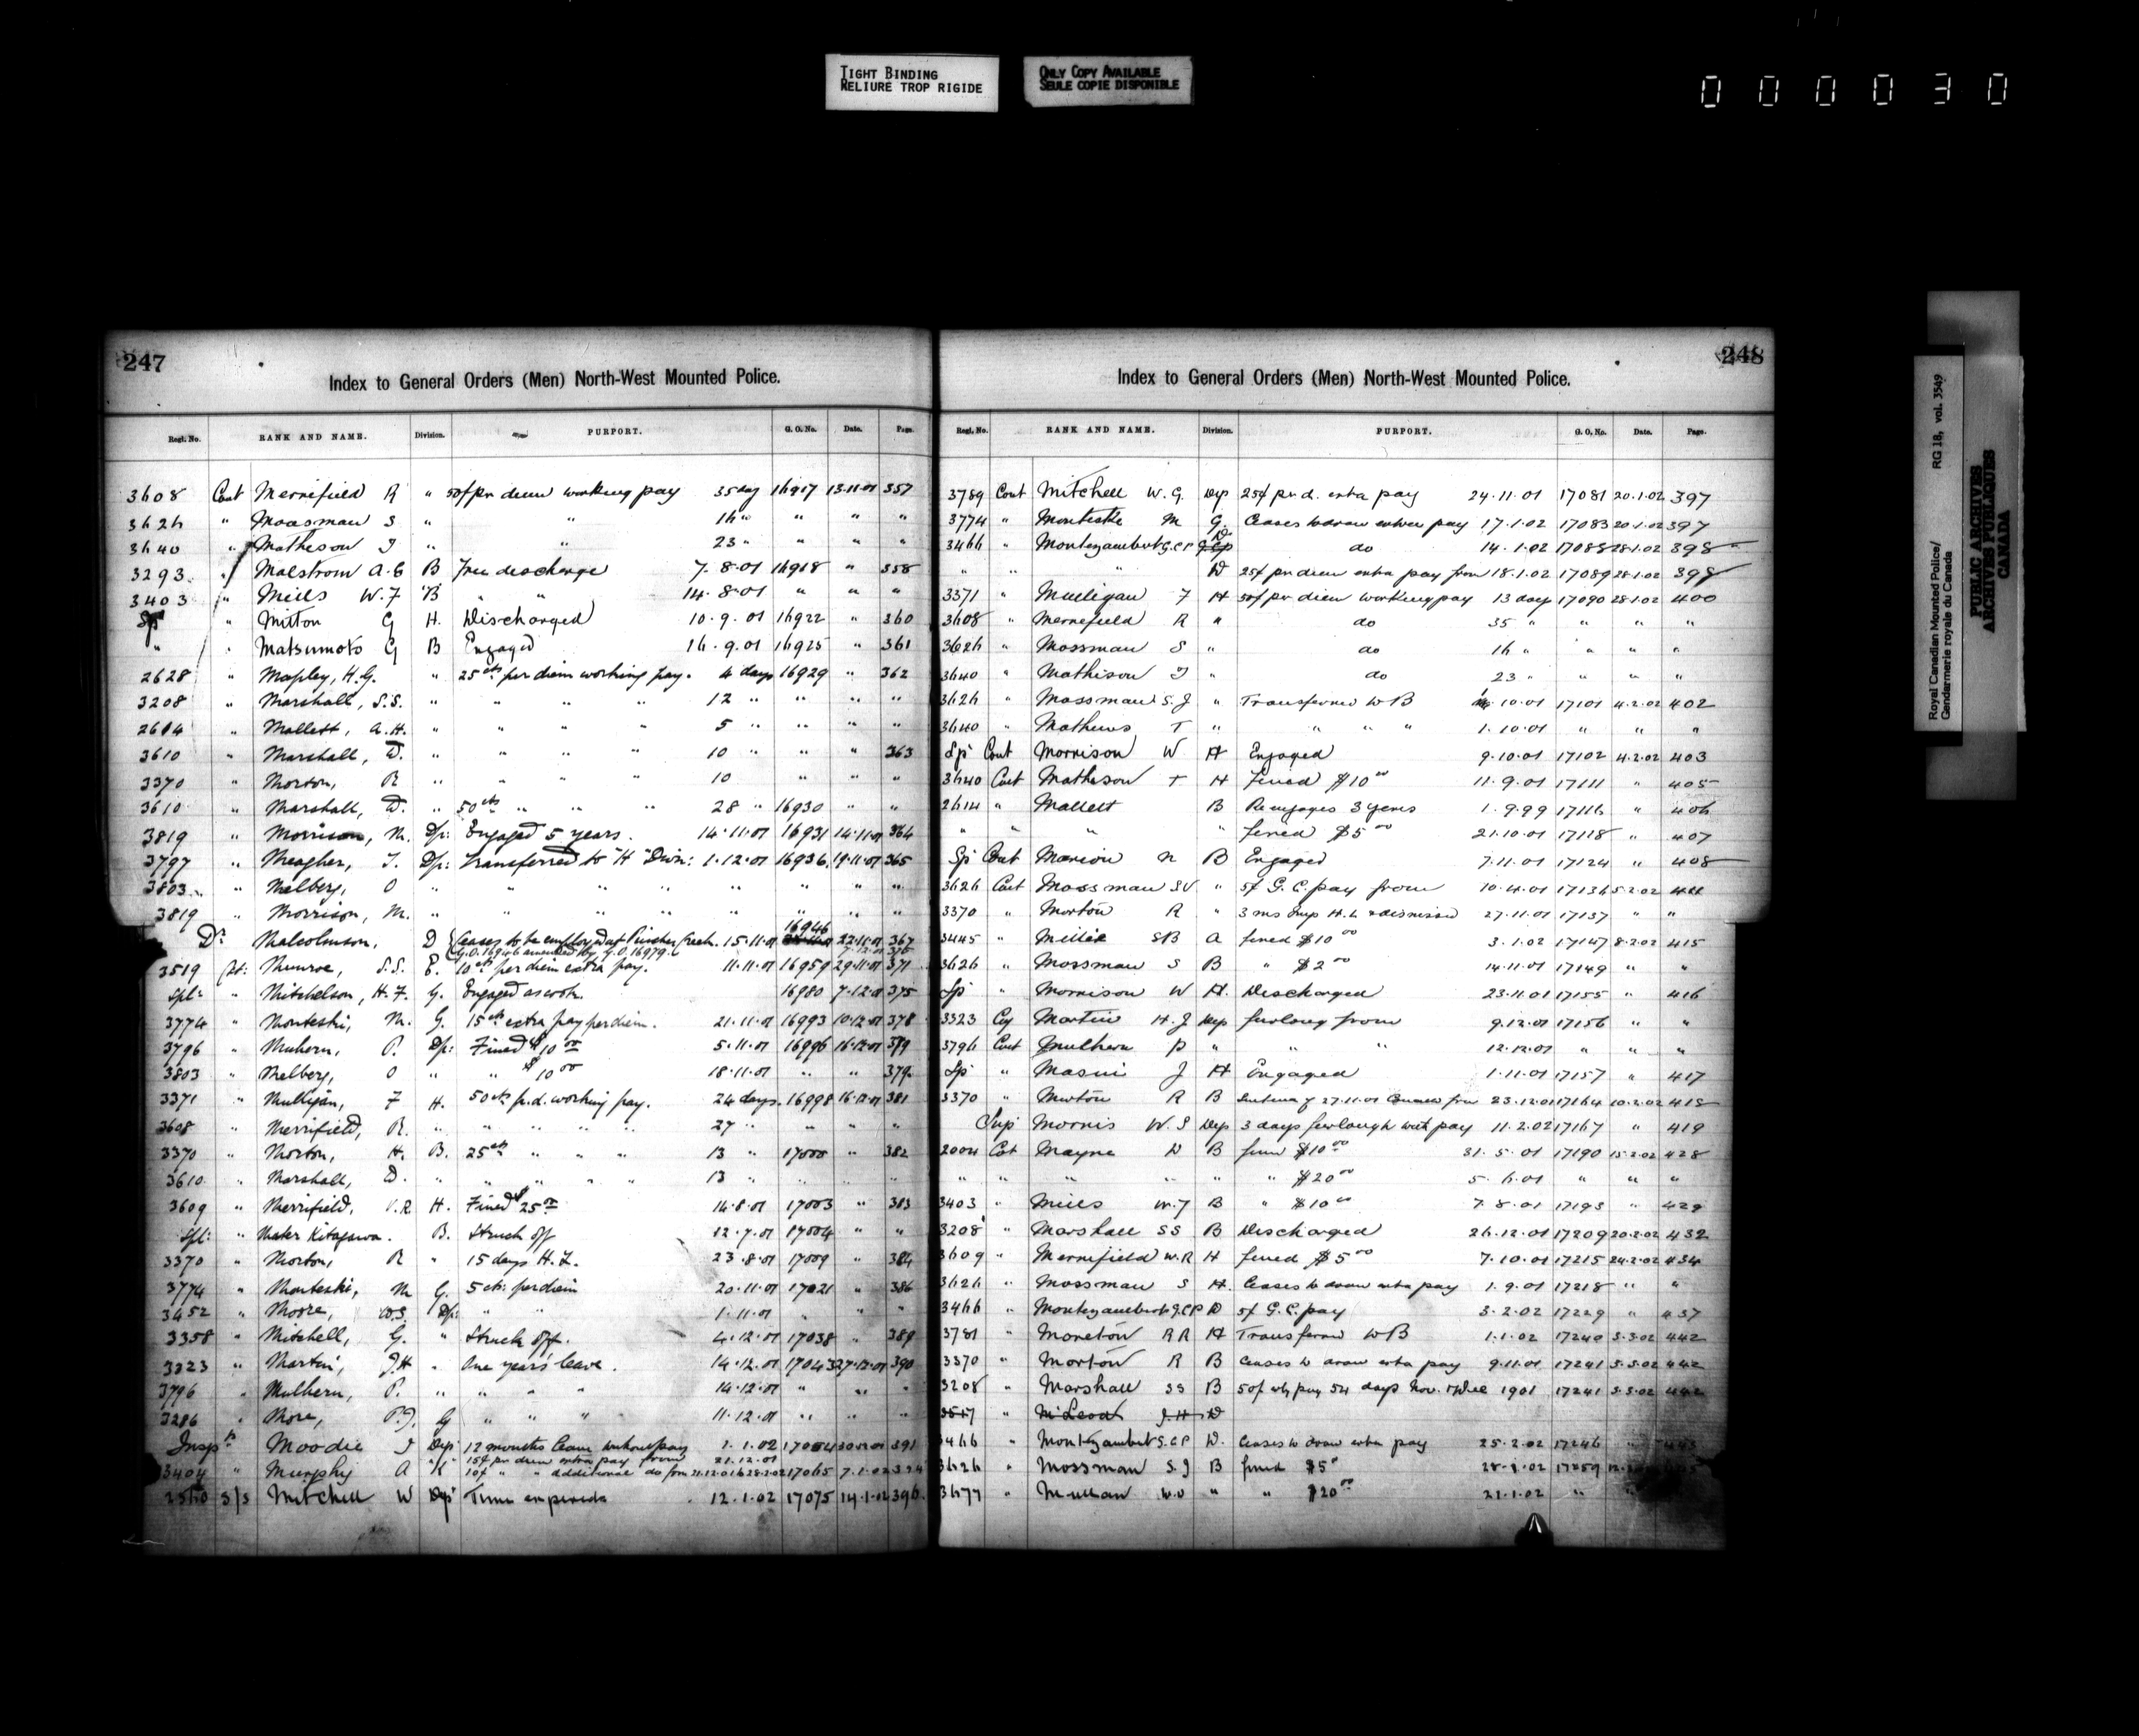 TIGHT BINDING
RELIURE TROP RIGIDE
ONLY COPY AVAILABLE
SEULE COPIE DISPONIBLE
000030
247
Index to General Orders (Men) North-West Mounted Police.
Regl. No. RANK AND NAME. Division. PURPORT. G. O. No. Date. Page.
3608 Cont Merrefield R " 50¢ per diem working pay 35 day 16917 13.11.01 357
3626 " Moasman S " " 16 " " " "
3640 " Matheson J " " 23 " " " "
3293 " Malstrom A.G B Free discharge 7.8.01 16918 " 358
3403 " Mills W.F B " " 14.8.01 " " "
Sp " Mitton G H. Discharged 10.9.01 16922 " 360
" " Matsumoto G B Engaged 16.9.01 16925 " 361
2628 " Mapley, H.G. " 25cts per diem working pay. 4 days 16929 " 362
3208 " Marshall, S.S. " " " " 12 " " " "
2614 " Mallett, A.H. " " " " 5 " " " "
3610 " Marshall, D. " " " " 10 " " " 363
3370 " Morton, R " " " " 10 " " "
3610 " Marshall, D. " 50cts " " " 28 " 16930 " "
3819 " Morrison, M. Dp: Engaged 5 years. 14.11.01 16931 14.11.01 364
3797 " Meagher, T. Dp: Transferred to "H" Divn: 1.12.01 16936 19.11.01 365
3803 " Melberg, O " " " " " " " "
3819 " Morrison, M. " " " " " " " "
Dr Malcolmson, D Ceases to be employed at Pincher Creek. 15.11.01 16946 22.11.01 367
G.O. 16946 amended by G.O. 16979. 7.12.01 375
3519 Ct: Munroe, S.S. E. 10cts per diem extra pay. 11.11.01 16959 29.11.01 371
Spl: " Mitchelson, H.F. G. Engaged as cook. 16980 7.12.01 375
3774 " Monteski, M. G. 15cts extra pay per diem. 21.11.01 16993 10.12.01 378
3796 " Mulhern, P. Dp: Fined $10.00 5.11.01 16996 16.12.01 379
3803 " Melberg, O " " $10.00 18.11.01 " " 379
3371 " Mulligan, F H. 50cts p.d. working pay. 24 days. 16998 16.12.01 381
3608 " Merrifield, R. " " " " " 27 " " " "
3370 " Morton, H. B. 25cts " " " 13 " 17000 " 382
3610 " Marshall, D. " " " " " 13 " " " "
3609 " Merrifield, W.R H. Fined $25.00 14.8.01 17003 " 383
Spl: " Mater Kitagawa. B. Struck off 12.7.01 17004 " "
3370 " Morton, R " 15 days H.L. 23.8.01 17009 " 384
3774 " Monteski, M G. 5cts: per diem 20.11.01 17021 " 386
3452 " Moore, W.S. Dp: " " 1.11.01 " " "
3358 " Mitchell, G. " Struck off. 4.12.01 17038 " 389
3323 " Martin, J.H " One years' leave. 14.12.01 17043 27.12.01 390
3796 " Mulhern, P. " " " " 14.12.01 " " "
3286 " More, P.J. G " " " 11.12.01 " " "
Inspr Moodie J Dep 12 months leave without pay 1.1.02 17054 30.12.01 391
15¢ per diem extra pay from 21.12.01
3404 " Murphy A K 10¢ " " additional do from 21.12.01 to 28.2.02 17065 7.1.02 394
2560 S/S Mitchell W Dep Time expired 12.1.02 17075 14.1.02 396
248
Index to General Orders (Men) North-West Mounted Police.
Regl. No. RANK AND NAME. Division. PURPORT. G. O. No. Date. Page.
3789 Cont Mitchell W.G. Dep 25¢ pr d. extra pay 24.11.01 17081 20.1.02 397
3774 " Monteske M G. Ceases to draw extra pay 17.1.02 17083 20.1.02 397
3466 " Montezambert G.C.P D do 14.1.02 17088 28.1.02 398
" " " D 25¢ pr diem extra pay from 18.1.02 17089 28.1.02 398
3371 " Mulligan F H 50¢ pr diem working pay 13 days 17090 28.1.02 400
3608 " Merrefield R " do 35 " " " "
3626 " Mossman S " do 16 " " " "
3640 " Mathison J " do 23 " " " "
3626 " Mossman S.J " Transferred to B 1.10.01 17101 4.2.02 402
3640 " Mathews T " " " " 1.10.01 " " "
Sp Cont Morrison W H Engaged 9.10.01 17102 4.2.02 403
3640 Cont Matheson T H fined $10.00 11.9.01 17111 " 405
2614 " Mallett B Re engages 3 years 1.9.99 17116 " 406
" " " " fined $5.00 21.10.01 17118 " 407
Sp Cont Marion N B Engaged 7.11.01 17124 " 408
3626 Cont Mossman SV " 5¢ G.C. pay from 10.4.01 17136 5.2.02 411
3370 " Morton R " 3 ms Imp H.L & dismissed 27.11.01 17137 " "
3445 " Millie SB A fined $10.00 3.1.02 17147 8.2.02 415
3626 " Mossman S B " $2.00 14.11.01 17149 " "
Sp " Morrison W H. Discharged 23.11.01 17155 " 416
3323 Cy Martin H.J Dep furlong from 9.12.01 17156 " "
3796 Cont Mulhern P " " " 12.12.01 " " "
Sp " Masui J H Engaged 1.11.01 17157 " 417
3370 " Morton R B Sentence of 27.11.01 from 23.12.01 17164 10.2.02 418
Sup Morris W.S Dep 3 days furlough with pay 11.2.02 17167 " 419
2004 Cot Mayne D B fined $10.00 31.5.01 17190 15.2.02 428
" " " " " " $20.00 5.6.01 " " "
3403 " Mills W.F B " $10.00 7.8.01 17193 " 429
3208 " Marshall SS B Discharged 26.12.01 17209 20.2.02 432
3609 " Merrifield W.R H fined $5.00 7.10.01 17215 24.2.02 434
3626 " Mossman S H. Ceases to draw extra pay 1.9.01 17218 " "
3466 " Montezambert G.C.P D 5¢ G.C. pay 3.2.02 17229 " 437
3781 " Moreton RR H Transferred to B 1.1.02 17240 3.3.02 442
3370 " Morton R B Ceases to draw extra pay 9.11.01 17241 3.3.02 442
3208 " Marshall SS B 50¢ wkg pay 54 days Nov. & Dec 1901 17241 3.3.02 442
3517 " McLeod J.H D
3466 " Montezambert G.C.P D. Ceases to draw extra pay 25.2.02 17246 "
3626 " Mossman S.J B fined $5 28.1.02 17259
3677 " Mullan W.D " " $20.00 21.1.02 "
Royal Canadian Mounted Police/
Gendarmerie royale du Canada
RG 18, vol. 3549
PUBLIC ARCHIVES
ARCHIVES PUBLIQUES
CANADA